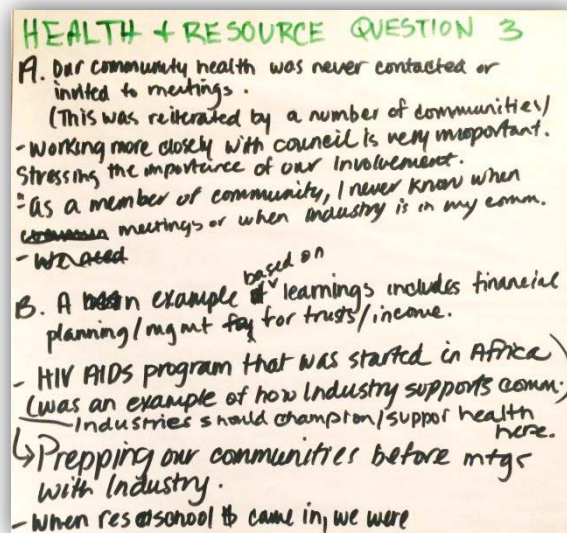 HEALTH + RESOURCE QUESTION 3
A. Our community health was never contacted or
invited to meetings.
(This was reiterated by a number of communities)
- working more closely with council is very important.
Stressing the importance of our involvement.
- as a member of community, I never know when
meetings or when industry is in my comm.
B. A example based on learnings includes financial
planning/mgmt for trusts/income.
- HIV AIDs program that was started in Africa
(was an example of how Industry supports comm.)
- Industries should champion/suppor health
here.
↳ Prepping our communities before mtgs
with Industry.
- When res school came in, we were